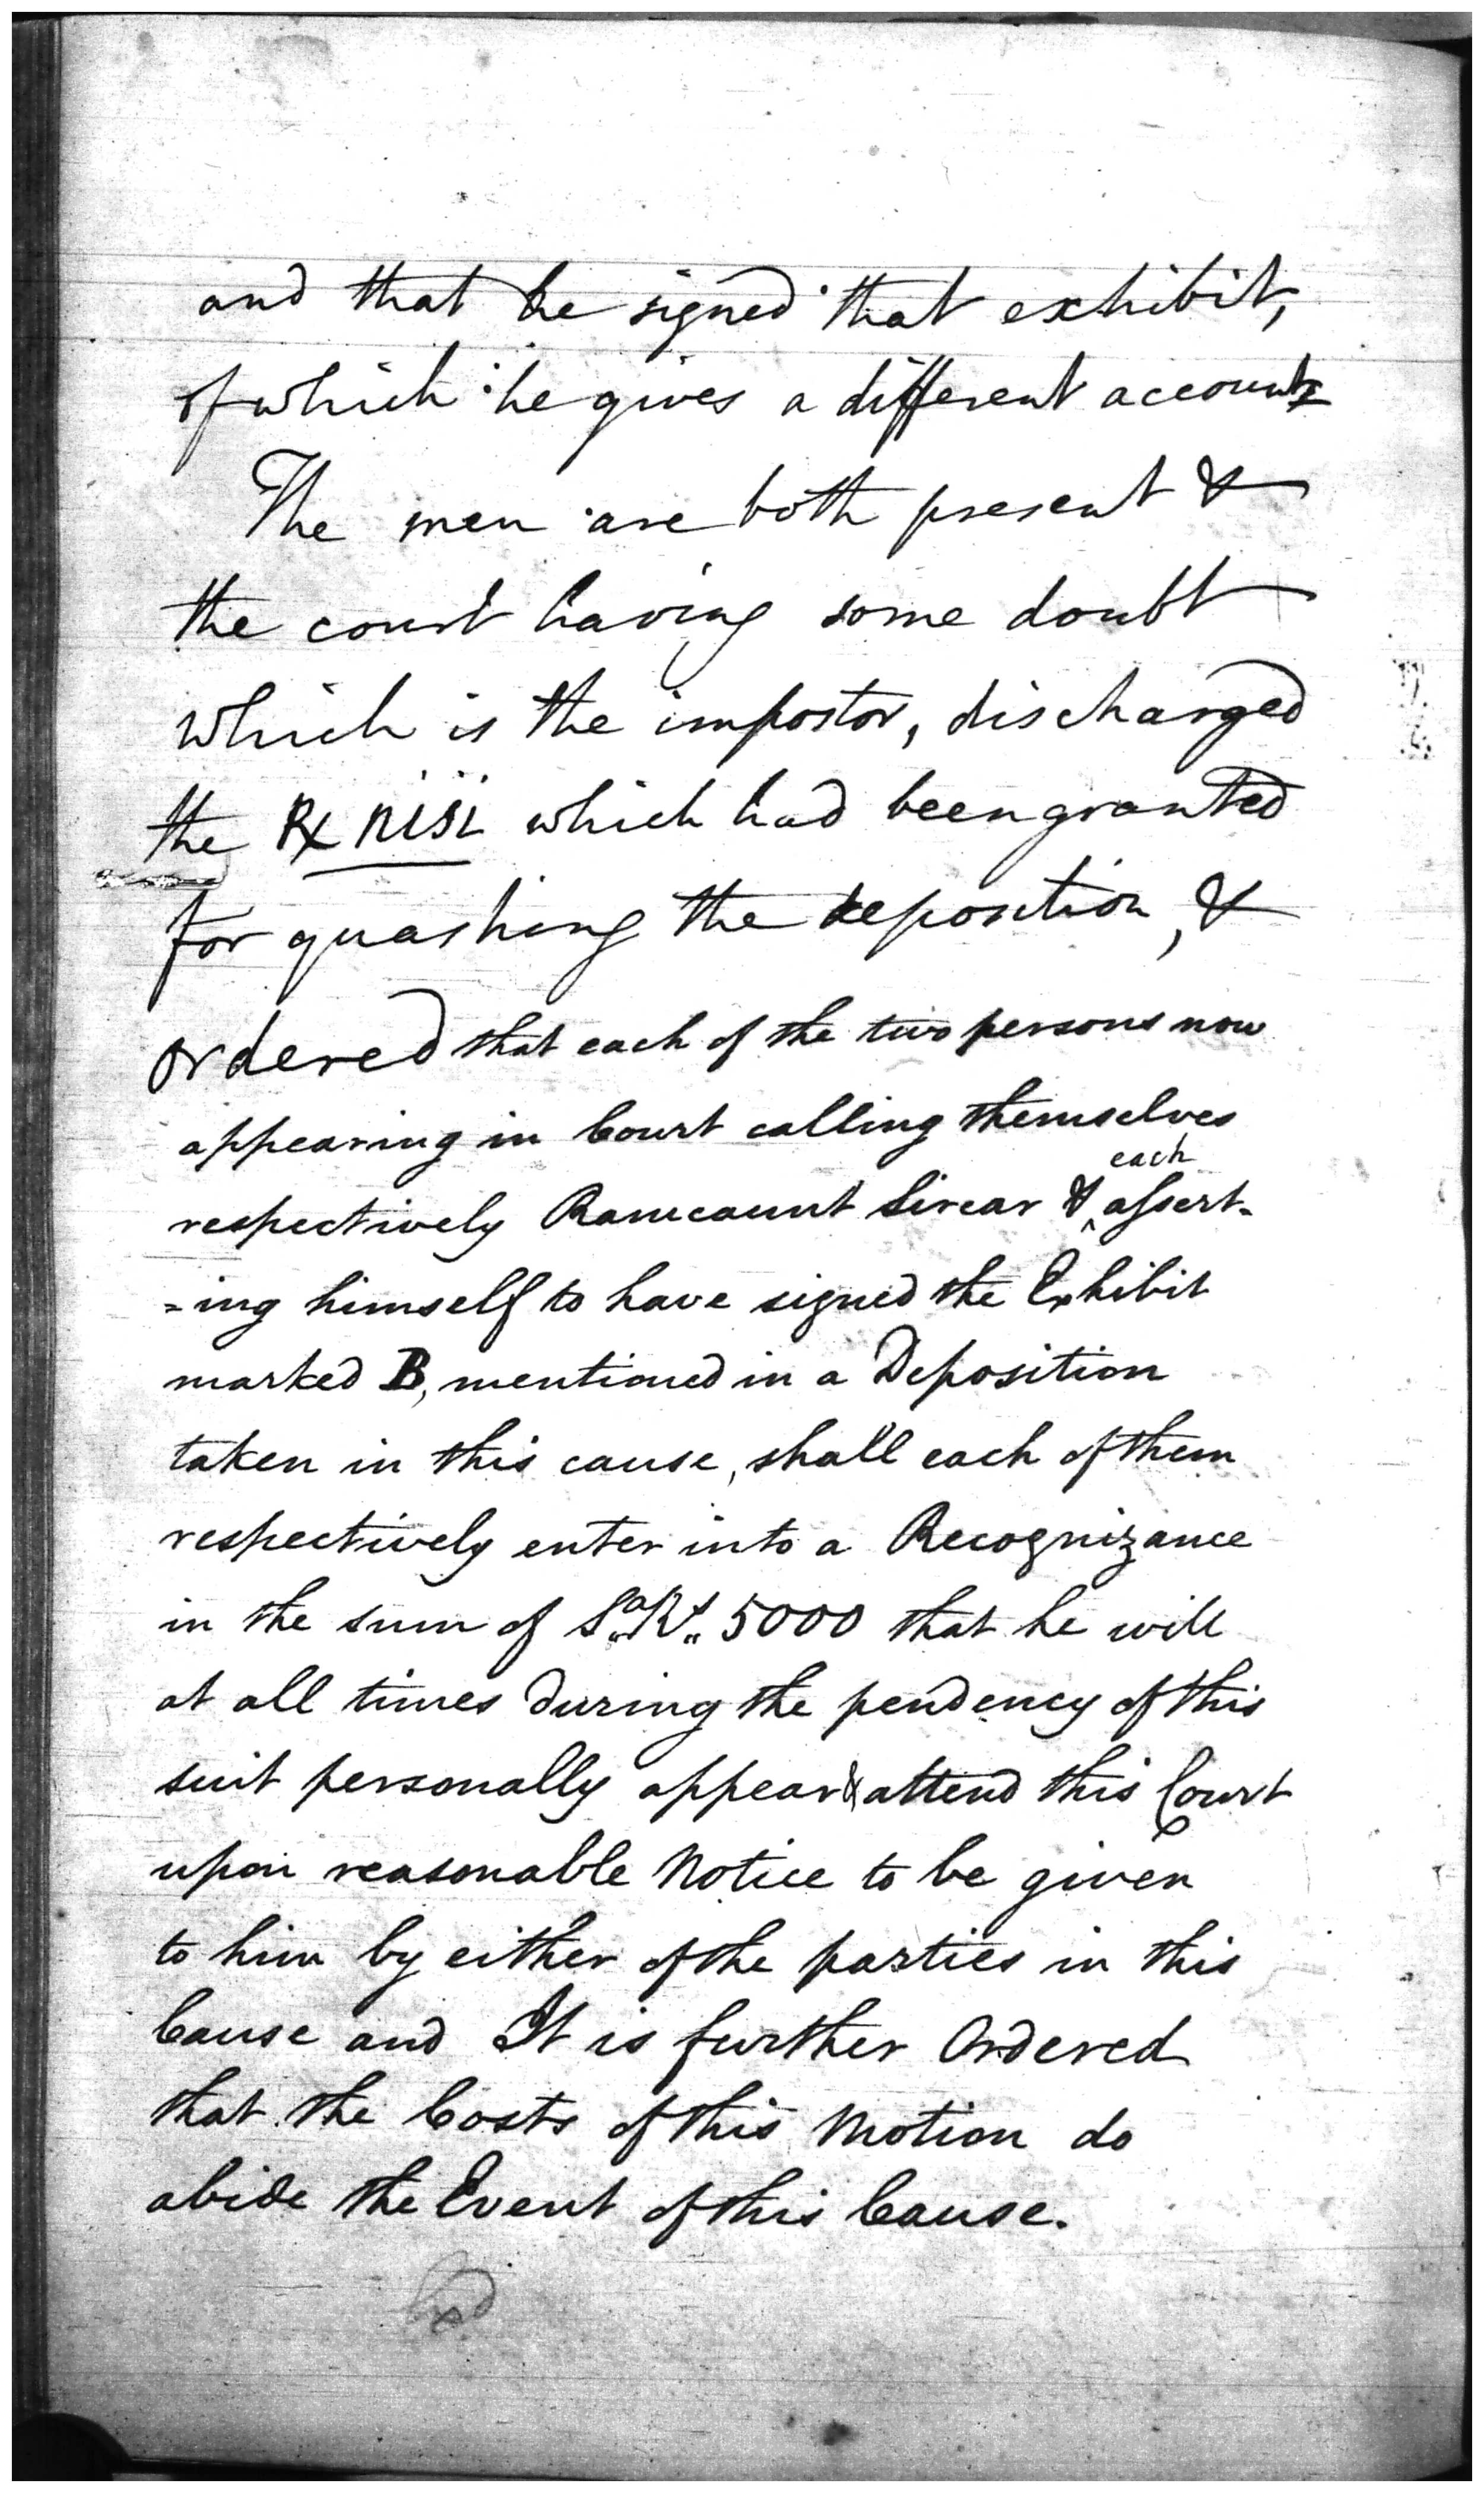 and that he signed that exhibit,
of which he gives a different account
The men are both present &
the court having some doubt
which is the impostor, discharged
the Rx nisi which had been granted
for quashing the deposition, &
ordered that each of the two persons now
appearing in Court calling themselves
each
respectively Ramcaunt Sircar & assert-
=ing himself to have signed the Exhibit
marked B, mentioned in a Deposition
taken in this cause, shall each of them
respectively enter into a Recognizance
in the sum of Sa Rs 5000 that he will
at all times during the pendency of this
suit personally appear & attend this Court
upon reasonable Notice to be given
to him by either of the parties in this
Cause and It is further Ordered
that the Costs of this Motion do
abide the Event of this Cause.